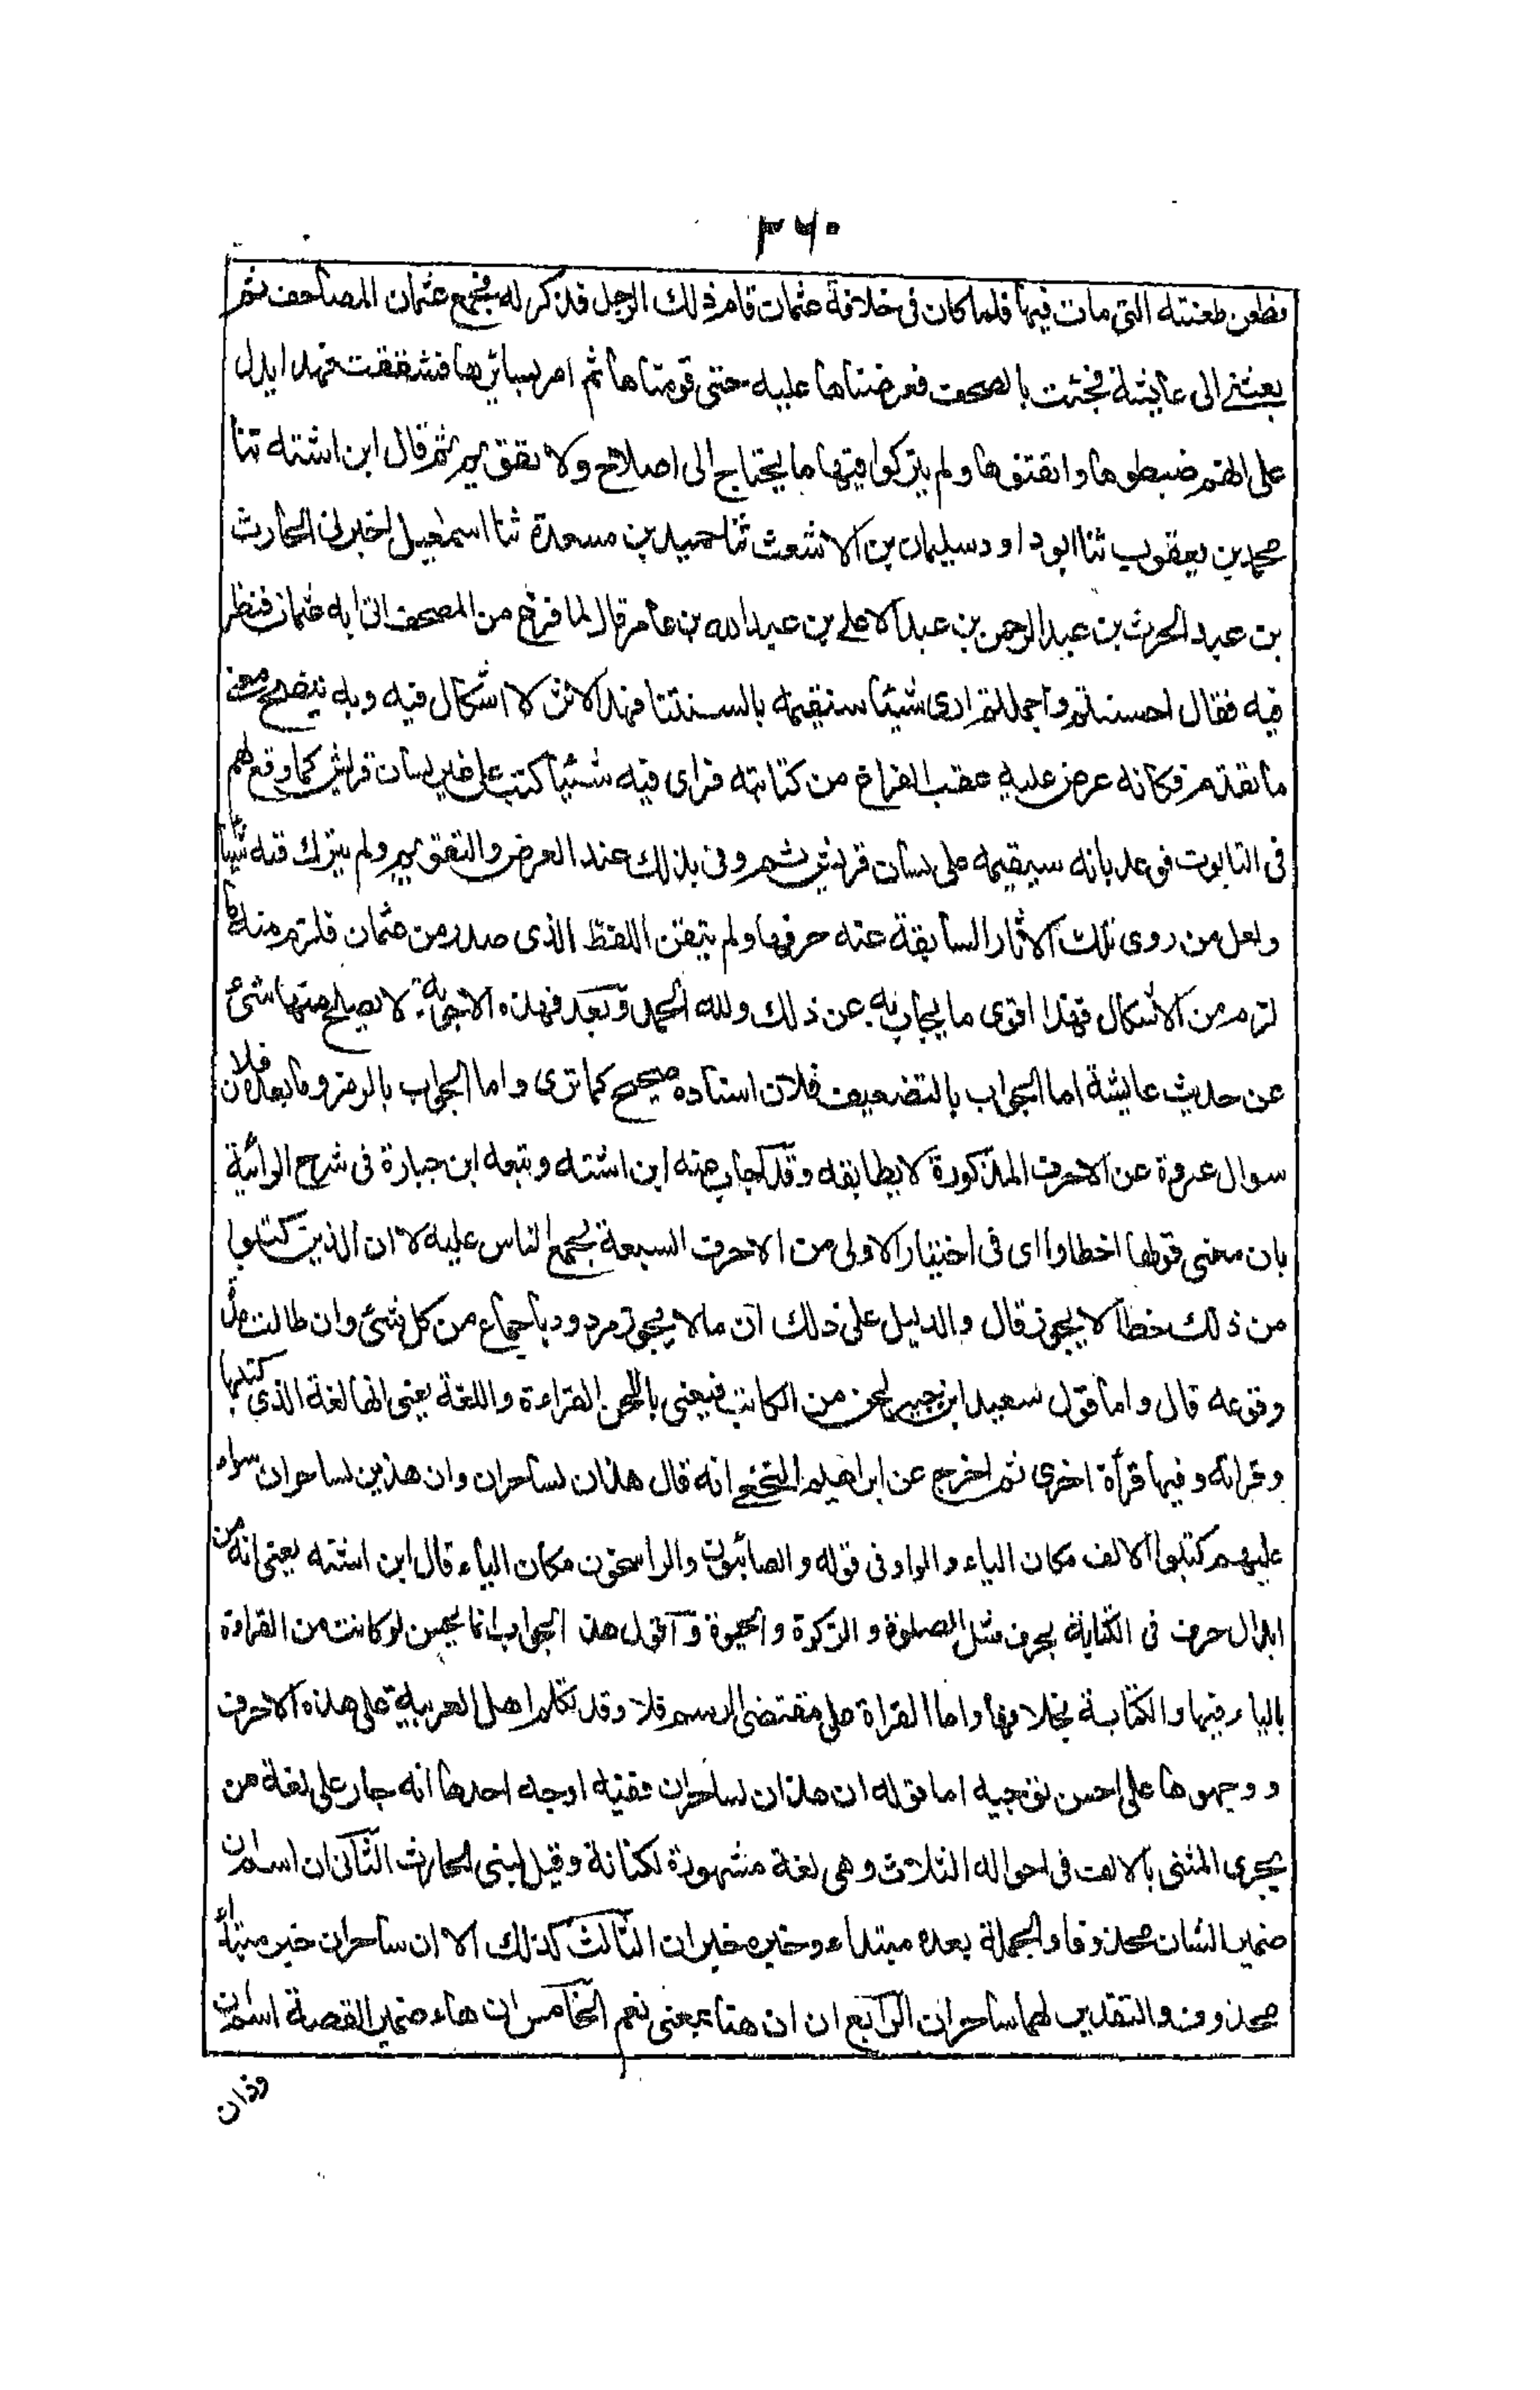 ٣٦٠
فطعن طعنته التى مات فيها فلما كان فى خلافة عثمان قام ذلك الرجل فذكر له فجمع عثمان المصاحف ثم
بعثنى الى عايشة فجئت بالصحف فعرضناها عليه حتى قومناها ثم امر بسائرها فشققت فهذا ايدل
على انهم ضبطوها واتقنوها ولم يتركوا فيها ما يحتاج الى اصلاح ولا تقويم ثم قال ابن اشته ثنا
محمد بن يعقوب ثنا ابو داود سليمان بن الاشعث ثنا حميد بن مسعدة ثنا اسمعيل اخبرنى الحارث
بن عبد الحرث بن عبد الرحمن بن عبد الاعلى بن عبد الله بن عامر قال لما فرغ من المصحف اتى به عثمان فنظر
فيه فقال احسنتم واجملتم ارى شيئا سنقيمه بالسنتنا فهذا الاثر لا اشكال فيه وبه يتضح معنى
ما تقدم فكانه عرض عليه عقب الفراغ من كتابته فراى فيه شيئا كتب على غير لسان قريش كما وقع لهم
فى التابوت فوعد بانه سيقيمه على لسان قريش ثم وفى بذلك عند العرض والتقويم ولم يترك فيه شيئا
ولعل من روى تلك الاثار السابقة عنه حرفها ولم يتقن اللفظ الذى صدر من عثمان فلزم منه ما
لزم من الاشكال فهذا اقوى ما يجاب به عن ذلك ولله الحمد وبعد فهذه الاجوبة لا يصلح منها شئ
عن حديث عايشة اما الجواب بالتضعيف فلان اسناده صحيح كما ترى واما الجواب بالرمز وما بعده فلان
سوال عروة عن الاحرف المذكورة لا يطابقه وقد اجاب عنه ابن اشته وتبعه ابن جبارة فى شرح الرائية
بان معنى قولها اخطاوا اى فى اختيار الاولى من الاحرف السبعة لجمع الناس عليه لا ان الذين كتبوا
من ذلك خطأ لا يجوز قال والدليل على ذلك ان ما لا يجوز مردود باجماع من كل شئ وان طالت مدة
وقوعه قال واما قول سعيد ابن جبير لحن من الكاتب فيعنى باللحن القراءة واللغة يعنى انها لغة الذى كتبها
وقراته وفيها قرأة اخرى ثم اخرج عن ابراهيم النخعى انه قال هذان لساحران وان هذين لساحران سواء
عليهم كتبوا الالف مكان الياء والواو فى قوله والصائبون والراسخون مكان الياء قال ابن اشته يعنى انه من
ابدال حرف فى الكتابة بحرف مثل الصلوة والزكوة والحيوة واقول هذا الجواب انما يحسن لو كانت من القراءة
بالياء فيها والكتابة بخلافها واما القراة على مقتضى الرسم فلا وقد تكلم اهل العربية على هذه الاحرف
ووجهوها على احسن توجيه اما قوله ان هذان لساحران ففيه اوجه احدها انه جار على لغة من
يجرى المثنى بالالف فى احواله الثلاث وهى لغة مشهورة لكنانة وقيل لبنى الحارث الثانى ان اسم ان
ضمير الشان محذوفا والجملة بعده مبتداء وخبره خبر ان الثالث كذلك الا ان ساحران خبر مبتدأ
محذوف والتقدير لهما ساحران الرابع ان ان هنا بمعنى نعم الخامس ان هاء ضمير القصة اسم ان
وذان